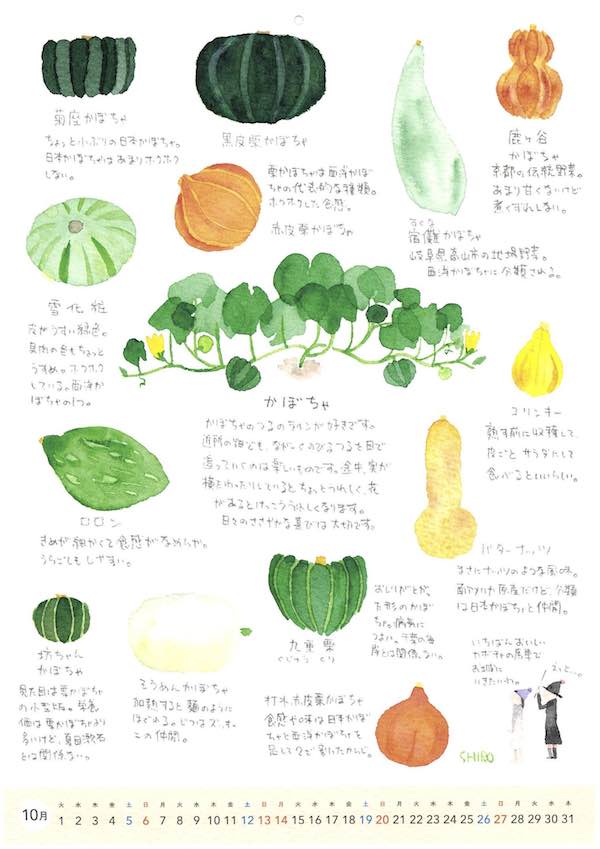 菊座かぼちゃ
ちょっと小ぶりの日本かぼちゃ。
日本かぼちゃはあまりホクホク
しない。
黒皮栗かぼちゃ
栗かぼちゃは西洋かぼ
ちゃの代表的な種類。
ホクホクした食感。
赤皮栗かぼちゃ
すくな
宿儺かぼちゃ
岐阜県高山市の地場野菜。
西洋かぼちゃに分類される。
鹿ヶ谷
かぼちゃ
京都の伝統野菜。
あまり甘くないけど
煮くずれしない。
雪化粧
皮がうすい緑色。
果肉の色もちょっと
うすめ。ホクホク
している。西洋か
ぼちゃの1つ。
かぼちゃ
かぼちゃのつるのラインが好きです。
近所の畑でも、ながーくのびるつるを目で
追っていくのは楽しいものです。途中、実が
横たわったりしているとちょっとうれしく、花
があるとけっこううれしくなります。
日々のささやかな喜びは大切です。
コリンキー
熟す前に収穫して、
皮ごとサラダにして
食べるといいらしい。
ロロン
きめが細かくて食感がなめらか。
うらごしもしやすい。
バターナッツ
まさにナッツのような風味。
南アメリカ原産だけど、分類
は日本かぼちゃと仲間。
坊ちゃん
かぼちゃ
見た目は栗かぼちゃ
の小型版。栄養
価は栗かぼちゃより
多いけど、夏目漱石
とは関係ない。
そうめんかぼちゃ
加熱すると麺のように
ほぐれる。じつはズッキー
ニの仲間。
九重栗
くじゅうくり
おしりがとがった
方形のかぼ
ちゃ。病気に
つよい。千葉の海
岸とは関係ない。
打木赤皮栗かぼちゃ
食感や味は日本かぼ
ちゃと西洋かぼちゃを
足して2で割ったかんじ。
いちばんおいしい
カボチャの馬車で
お城に
いきたいわ。
えっと…
SHIBO
10月
火 水 木 金 土 日 月 火 水 木 金 土 日 月 火 水 木 金 土 日 月 火 水 木 金 土 日 月 火 水 木
1 2 3 4 5 6 7 8 9 10 11 12 13 14 15 16 17 18 19 20 21 22 23 24 25 26 27 28 29 30 31